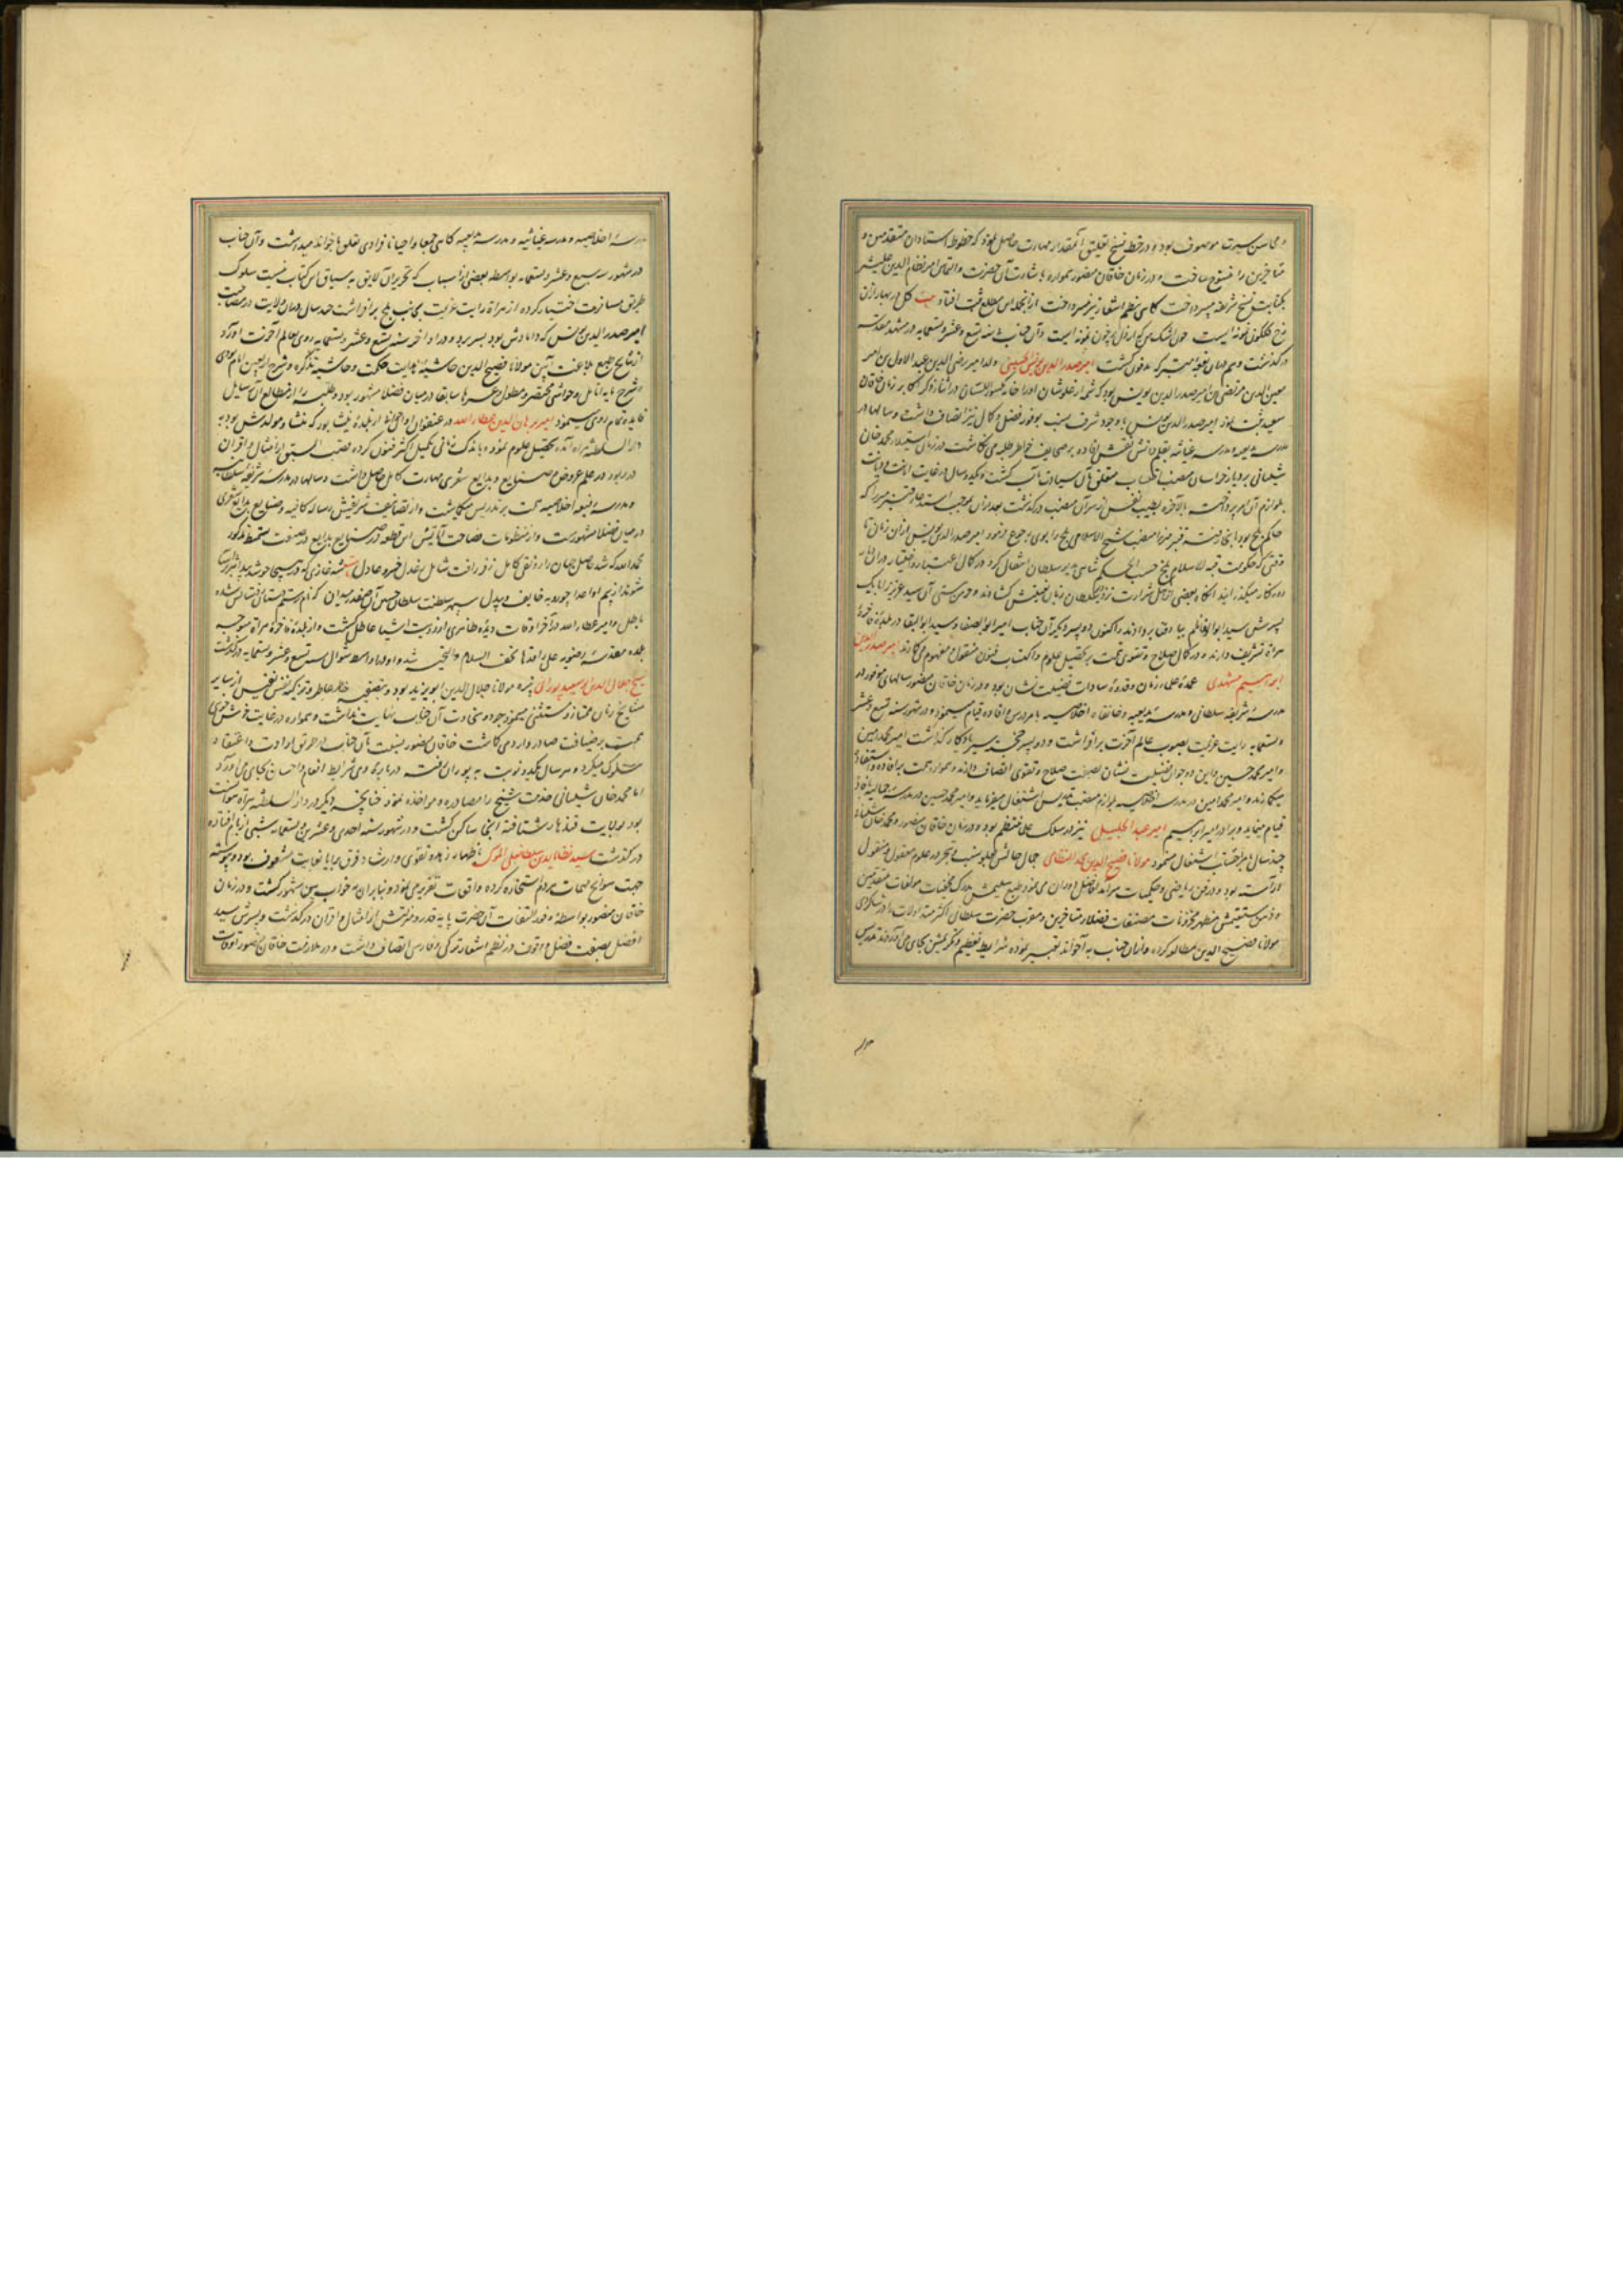 و محاسن سیرت موصوف بود و در خط نسخ تعلیق آنمقدار مهارت حاصل نمود که خطوط استادان متقدمین و
متاخرین را منسوخ ساخت و در زمان خاقان منصور همواره باشارت آن حضرت والتماس امیر نظام الدین علیشیر
بکتابت نسخ شریفه میپرداخت گاهی بنظم اشعار نیز میپرداخت ازانجمله این مطلع ثبت افتاد بیت گل در بهار ازان
رخ گلگون نمونه ایست چون اشک من که از دل پرخون نمونه ایست و آن جناب در سنه تسع و عشر و تسعمایه در مشهد مقدسه
درگذشت و هم دران بقعه متبرکه مدفون گشت امیر صدر الدین یونس الحسینی ولد امیر رضی الدین عبد الاول بن امیر
معین الدین مرتضی بن امیر صدر الدین یونس بود که شمه از علو شان او را خامه در اثنا ذکر اکابر زمان خاقان
سعید ثبت نمود امیر صدر الدین یونس با وجود شرف نسب بوفور فضل و کمال نیز اتصاف داشت و سالها در
مدرسه بدیعیه و مدرسه غیاثیه بقلم دانش نقش افاده بر صحایف خواطر طلبه می نگاشت در زمان استیلاء محمد خان
شیبانی بر دیار خراسان منصب احتساب متعلق بآن سیادت مآب گشت و یکدو سال در غایت امانت و دیانت
بلوازم آن امر پرداخت بالآخره بطیب نفس از سر آن منصب درگذشت بعد ازان بموجب استدعاء
حاکم بلخ بود بآنجا رفته منصب شیخ الاسلامی بلخ را بوی رجوع فرمود امیر صدر الدین یونس ازان زمان تا
وقتی که حکومت قبه الاسلام بلخ حسب الحکم شاهی به دیو سلطان انتقال کرد در کمال اعتبار و اختیار دران دیار
روزگار میگذرانید آنگاه بعضی از اهل شرارت نزد دیو سلطان زبان بغیبتش گشادند
پسرش سید ابو القاسم بباد فنا بر دادند و اکنون دو پسر دیگر آن جناب امیر ابو الصفا و سید ابو البقا در بلده فاخره
هراة تشریف دارند و در کمال صلاح و تقوی همت بر تحصیل علوم و اکتساب فنون منقول و مفهوم می گمارند امیر صدر الدین
ابراهیم مشهدی عمده علماء زمان و قدوه سادات فضیلت نشان بود و در زمان خاقان منصور سالهای موفور در
مدرسه شریفه سلطانی و مدرسه بدیعیه و خانقاه اخلاصیه بامر درس و افاده قیام مینمود و در شهور سنه تسع و عشر
و تسعمایه رایت عزیمت بصوب عالم آخرت برافراشت و دو پسر خجسته سیر یادگار گذاشت امیر محمد امین
و امیر محمد حسین و این دو جوان فضیلت نشان بصفت صلاح و تقوی اتصاف دارند و همواره همت بر افاده و استفاده
میگمارند و امیر محمد امین در مدرسه اخلاصیه بلوازم منصب تدریس اشتغال میفرماید و امیر محمد حسین در مدرسه
قیام مینماید و برادر امیر ابراهیم امیر عبد الجلیل نیز در سلک علما منتظم بود و در زمان خاقان منصور و محمد خان شیبانی
چند سال بامر احتساب اشتغال مینمود مولانا فصیح الدین محمد النظامی جمال حالش بعلو نسب و تبحر در علوم معقول و منقول
آراسته بود و در فن ریاضی و حکمیات سرآمد افاضل دوران می نمود طبع سلیمش مدرک مخفیات مولفات متقدمین
و ذهن مستقیمش مظهر مخزونات مصنفات فضلاء متاخرین و مقرب حضرت سلطانی اکثر متداولات را در شاگردی
مولانا فصیح الدین مطالعه کرده و ازان جناب به آخوند تعبیر نموده شرایط تعظیم و تکریمش بجای می آوردند تدریس
مدرسه
مدرسه اخلاصیه و مدرسه غیاثیه و مدرسه بدیعیه گاهی جمعا و احیانا فرادی تعلق بآخواند میداشت و آن جناب
در شهور سنه سبع و عشر و تسعمایه بواسطه بعضی از اسباب که تحریر آن لایق به سیاق این کتاب نیست سلوک
طریق مسافرت اختیار کرده از هراة رایت عزیمت بجانب بلخ برافراشت چند سال دران ولایت در مصاحبت
امیر صدر الدین یونس که دامادش بود بسر برد و در اواخر سنه تسع و عشر و تسعمایه روی بعالم آخرت آورد
از نتایج طبع بلاغت آیین مولانا فصیح الدین حاشیه هدایت حکمت و حاشیه تذکره و شرح اربعین امام نووی
و شرح مایه عامل و حواشی مختصر و مطول و غیرها سابقا در میان فضلا مشهور بود و طلبه را از مطالعه آن رسایل
فایده تمام روی مینمود امیر برهان الدین عطاء الله در عنفوان اوان جوانی از بلده نیشابور که منشا و مولدش بود به
دار السلطنه هراه آمده تحصیل علوم نمود و باندک زمانی تکمیل اکثر فنون کرده قصب السبق از امثال و اقران
در ربود و در علم عروض و صنایع و بدایع شعری مهارت کامل حاصل داشت و سالها در مدرسه شریفه سلطانیه
و مدرسه رفیعه اخلاصیه همت بر تدریس میگماشت و از تصانیف شریفش رساله کافیه و صنایع بدایع شعری
در میان فضلا مشهورست و از منظومات فصاحت آیاتش این قطعه در صنایع بدایع
بحمد الله که شد حاصل جهان را رونق کامل ز فر رافت شامل بعدل خسرو عادل
سپهر سلطنت سلطان حسین آن صفدر میدان که نام رستم دستان
باطل و امیر عطاء الله در آخر اوقات دیده ظاهری از رویت اشیا عاطل گشت و از بلده فاخره هراة متوجه
بلده مقدسه رضویه علی راقدها تحف السلام والتحیه شد و در اواسط شوال سنه تسع و عشر و تسعمایه درگذشت
شیخ جلال الدین ابو سعید پورانی نبیره مولانا جلال الدین ابو یزید بود و بتصفیه خاطر عاطر و تزکیه نفس نفیس از سایر
مشایخ زمان ممتاز و مستثنی مینمود جود و سخاوت آن جناب نهایت نداشت و همواره در غایت خوش خوئی
همت بر ضیافت صادر و وارد می گماشت خاقان منصور نسبت بآن جناب از طریق ارادت و اعتقاد
سلوک میکرد و هر سال یکدو نوبت به پوران رفته درباره وی شرایط انعام و احسان بجای می آورد
اما محمد خان شیبانی خدمت شیخ را مصادره و مواخذه نمود چنانچه دیگر در دار السلطنه هراة نتوانست
بود بولایت قندهار شتافته آنجا ساکن گشت و در شهور سنه احدی و عشرین و تسعمایه شبی از بام افتاده
درگذشت سید نظام الدین سلطانعلی باظهار زهد و تقوی و ارشاد فرق برایا بغایت مشعوف بود و پیوسته
جهت سوانح مهمات مردم استخاره کرده واقعات تقریر می نمود و بنابران به خواب بین مشهور گشت و در زمان
خاقان منصور بواسطه وفور التفات آن حضرت پایه قدر و منزلتش از امثال و اقران درگذشت و پسرش سید
افضل بصفت فضل و وقوف در نظم اشعار ترکی و فارسی اتصاف داشت و در ملازمت خاقان منصور اوقات